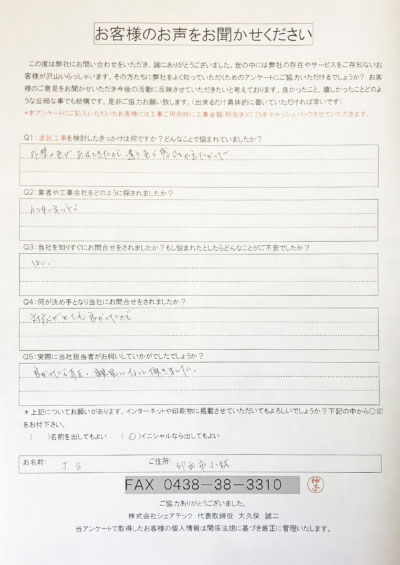 お客様のお声をお聞かせください
この度は弊社にお問い合わせをいただき、誠にありがとうございます。世の中には弊社の存在やサービスをご存知ないお
客様が沢山いらっしゃいます。その方たちに弊社をよく知っていただくためのアンケートにご協力いただけるでしょうか？ お客
様のご意見をお聞かせいただき今後の活動に反映させていただきたいと考えております。良かったこと、嬉しかったことどのよ
うな些細な事でも結構です。是非ご協力お願い致します。（出来るだけ具体的に書いていただければ幸いです）
*本アンケートにご記入いただいたお客様には工事ご用命時に工事金額(税抜き)の2%をキャッシュバックさせていただきます。
Q1：塗装工事を検討したきっかけは何ですか？どんなことで悩まれていましたか？
外壁の色が
Q2：業者や工事会社をどのように探されましたか？
インターネットから
Q3：当社を知りすぐにお問合せをされましたか？もし悩まれたとしたらどんなことがご不安でしたか？
はい。
Q4：何が決め手となり当社にお問合せをされましたか？
とても良かったので
Q5：実際に当社担当者がお伺いしていかがでしたでしょうか？
良かったです。
*上記についてお願いがあります。インターネットや印刷物に掲載させていただいてもよろしいでしょうか？下記の中から〇印
をお付下さい。
（　）名前を出してもよい （〇）イニシャルなら出してもよい
お名前： J S ご住所： 印西市小林
FAX 0438-38-3310
ご協力ありがとうございました。
株式会社シェアテック 代表取締役 大久保 誠二
当アンケートで取得したお客様の個人情報は関係法規に基づき厳正に管理いたします。